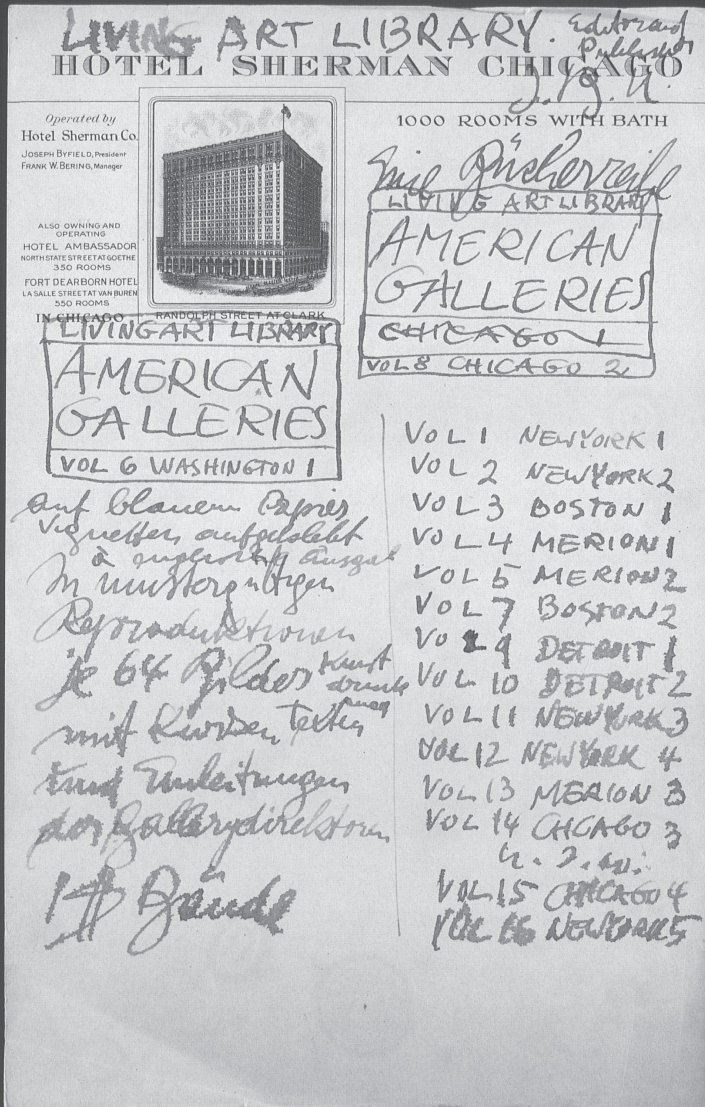 LIVING ART LIBRARY.
Editor and
Publisher
J. B. N.
HOTEL SHERMAN CHICAGO
Operated by
Hotel Sherman Co.
JOSEPH BYFIELD, President
FRANK W. BERING, Manager
ALSO OWNING AND
OPERATING
HOTEL AMBASSADOR
NORTH STATE STREET AT GOETHE
350 ROOMS
FORT DEARBORN HOTEL
LA SALLE STREET AT VAN BUREN
550 ROOMS
IN CHICAGO
RANDOLPH STREET AT CLARK
1000 ROOMS WITH BATH
Eine Bücherreihe
LIVING ART LIBRARY
AMERICAN
GALLERIES
CHICAGO 1
VOL 8 CHICAGO 2
LIVING ART LIBRARY
AMERICAN
GALLERIES
VOL 6 WASHINGTON 1
auf blauem Papier
Vignetten aufgeklebt
à
In mustergültigen
Reproduktionen
je 64 Bilder Kunst
druck
mit kurzen Texten
und Einleitungen
der Gallerydirektoren
1$ Bände
VOL 1 NEW YORK 1
VOL 2 NEW YORK 2
VOL 3 BOSTON 1
VOL 4 MERION 1
VOL 5 MERION 2
VOL 7 BOSTON 2
VOL 9 DETROIT 1
VOL 10 DETROIT 2
VOL 11 NEW YORK 3
VOL 12 NEW YORK 4
VOL 13 MERION 3
VOL 14 CHICAGO 3
u. s. w.
VOL 15 CHICAGO 4
VOL 16 NEW YORK 5